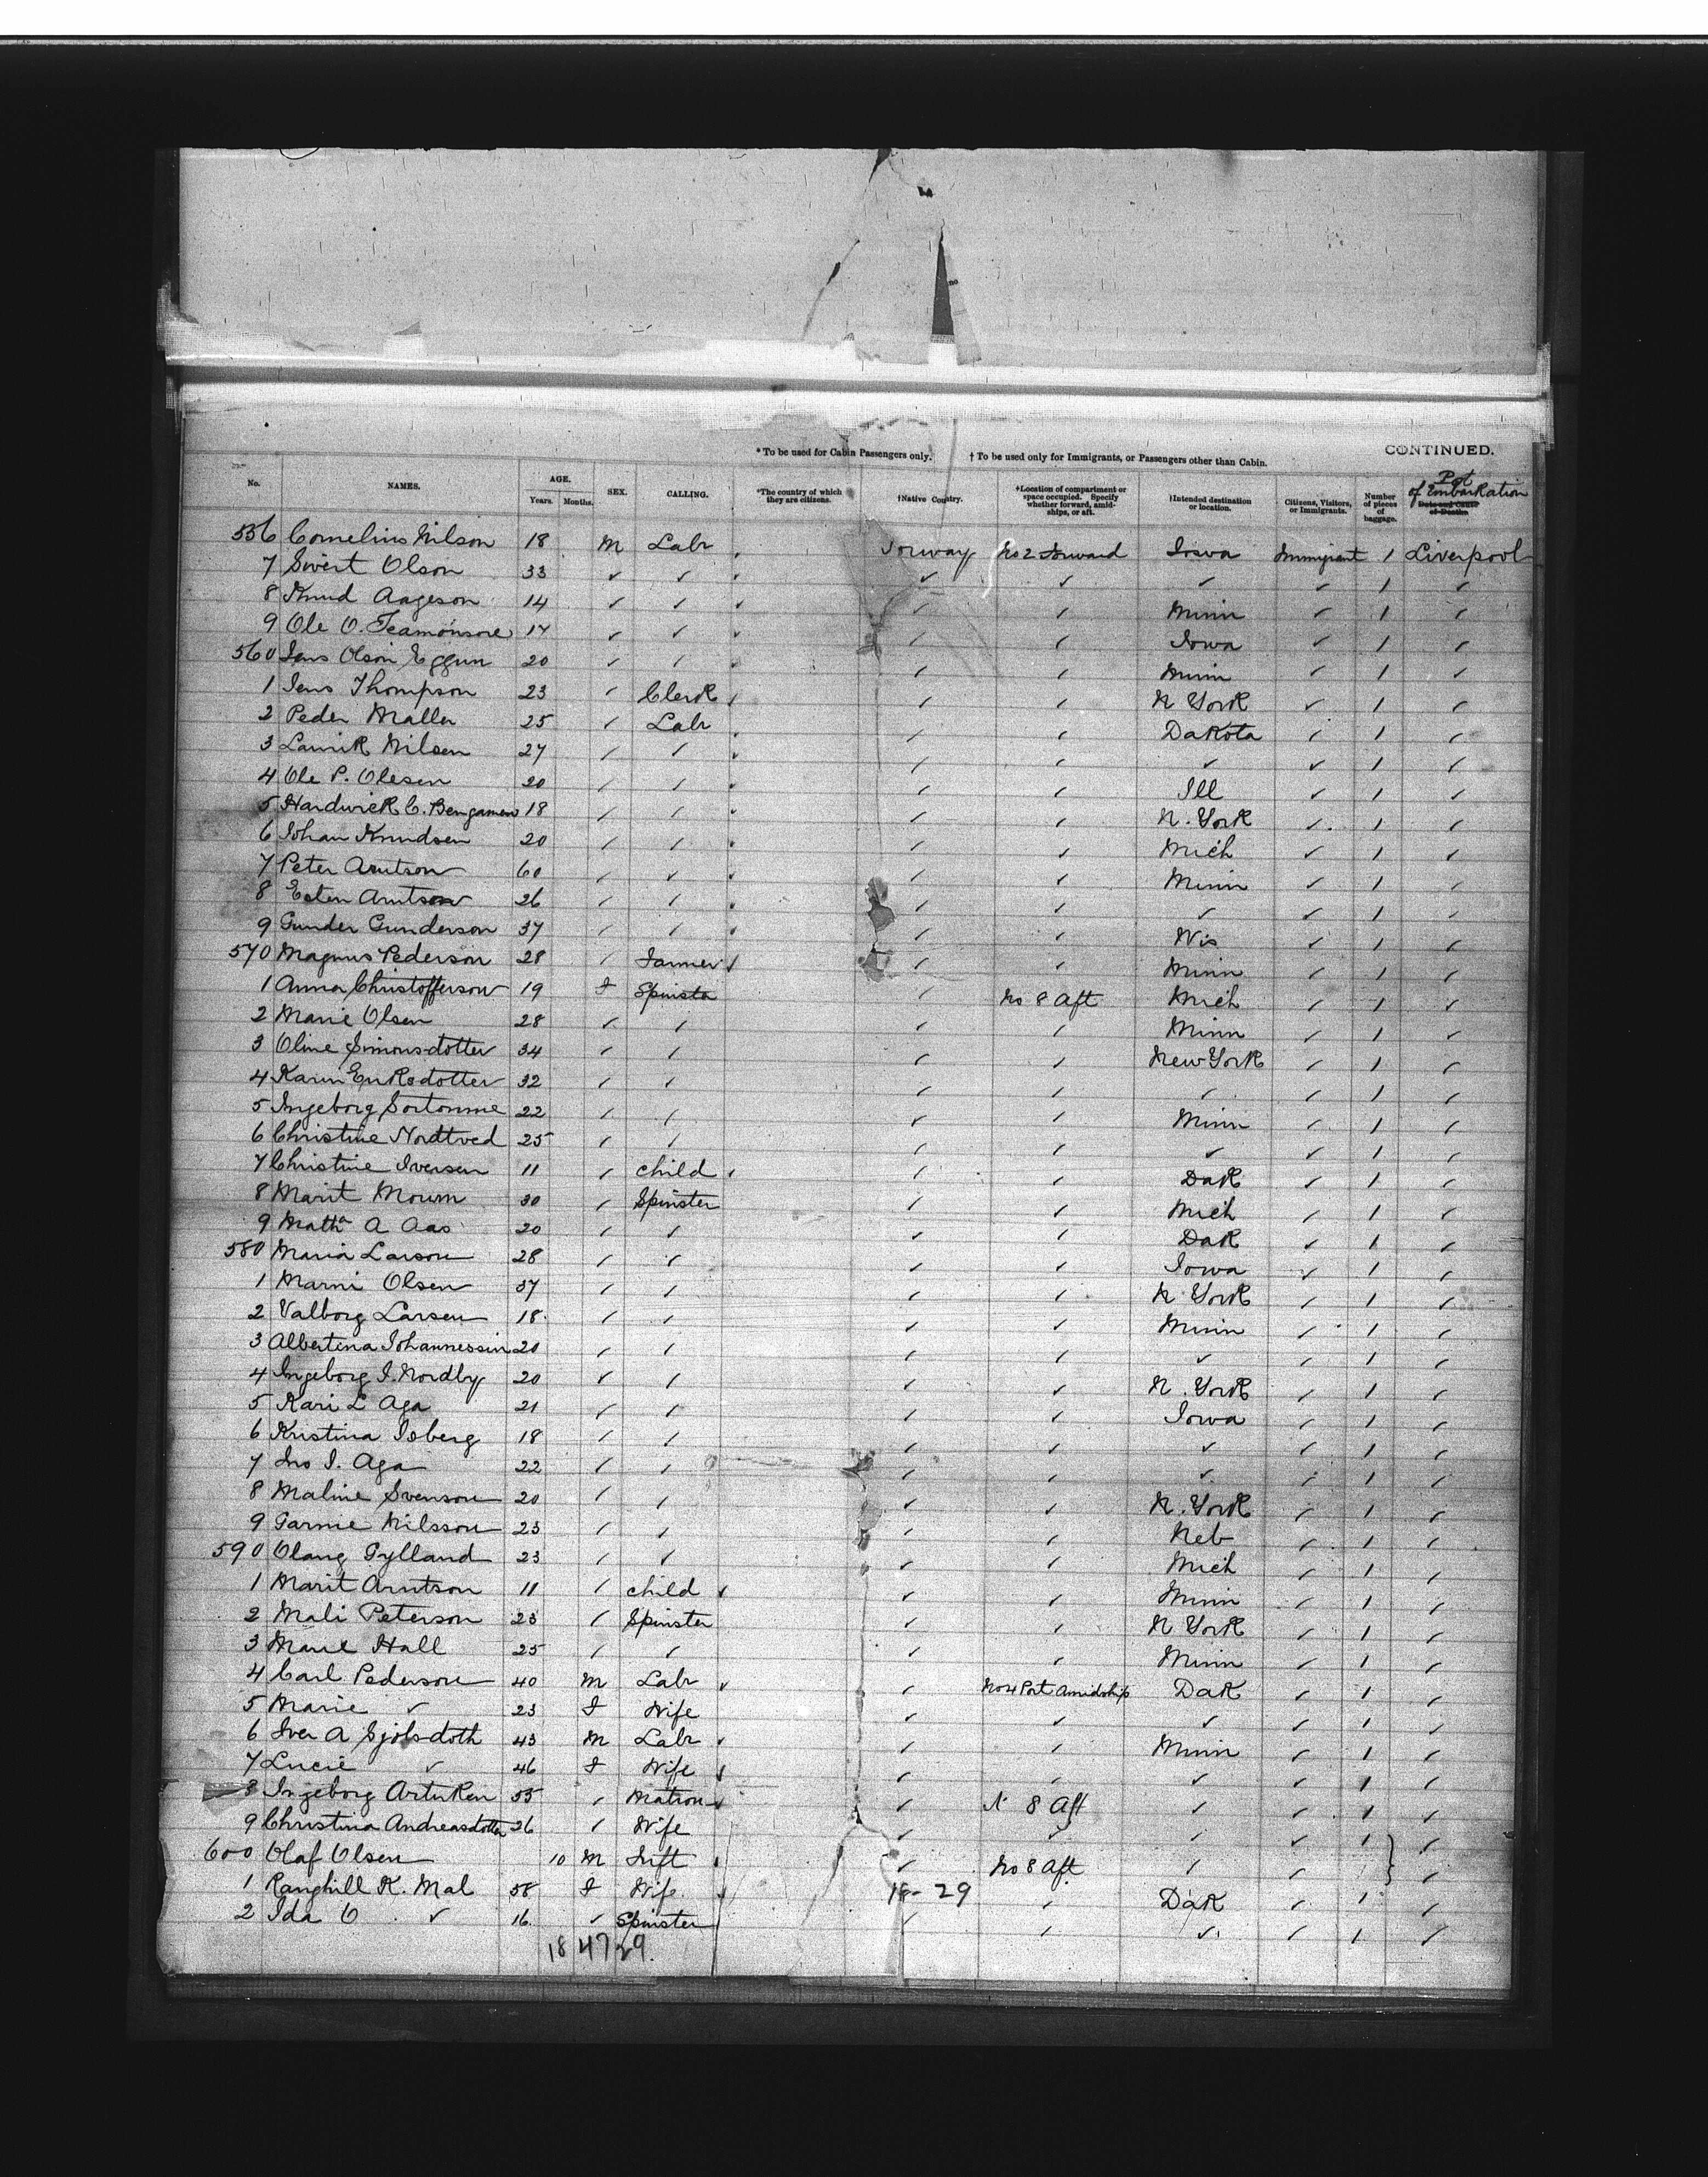 no
CONTINUED.
* To be used for Cabin Passengers only. † To be used only for Immigrants, or Passengers other than Cabin.
No. NAMES. AGE. Years. Months. SEX. CALLING. *The country of which they are citizens. †Native Country. †Location of compartment or space occupied. Specify whether forward, amidships, or aft. †Intended destination or location. Citizens, Visitors, or Immigrants. Number of pieces of baggage. Pot of Embarkation Date and Cause of Death.
556 Cornelius Nilson 18 M Labr Norway No 2 Forward Iowa Immigrant 1 Liverpool
7 Sivert Olson 33 ✓ ✓ ✓ ✓ ✓ ✓ 1 ✓
8 Knud Aageson 14 ✓ ✓ ✓ ✓ Minn ✓ 1 ✓
9 Ole O. 17 ✓ ✓ ✓ ✓ Iowa ✓ 1 ✓
560 Jens Olson Eggun 20 ✓ ✓ ✓ ✓ Minn ✓ 1 ✓
1 Jens Thompson 23 ✓ Clerk ✓ ✓ N York ✓ 1 ✓
2 Peder Maller 25 ✓ Labr ✓ ✓ Dakota ✓ 1 ✓
3 Laurik Nilsen 27 ✓ ✓ ✓ ✓ ✓ ✓ 1 ✓
4 Ole P. Olesen 20 ✓ ✓ ✓ ✓ Ill ✓ 1 ✓
5 Hardwick C. Bengamen 18 ✓ ✓ ✓ ✓ N. York ✓ 1 ✓
6 Johan Knudsen 20 ✓ ✓ ✓ ✓ Mich ✓ 1 ✓
7 Peter Arntson 60 ✓ ✓ ✓ ✓ Minn ✓ 1 ✓
8 Esten Arntson 26 ✓ ✓ ✓ ✓ ✓ ✓ 1 ✓
9 Gunder Gunderson 37 ✓ ✓ ✓ ✓ Wis ✓ 1 ✓
570 Magnus Pederson 28 ✓ Farmer ✓ ✓ Minn ✓ 1 ✓
1 Anna Christofferson 19 F Spinster ✓ No 8 Aft Mich ✓ 1 ✓
2 Marie Olsen 28 ✓ ✓ ✓ ✓ Minn ✓ 1 ✓
3 Oline Simonsdotter 34 ✓ ✓ ✓ ✓ New York ✓ 1 ✓
4 Karin Eriksdotter 32 ✓ ✓ ✓ ✓ ✓ ✓ 1 ✓
5 Ingeborg Sortomme 22 ✓ ✓ ✓ ✓ Minn ✓ 1 ✓
6 Christine Nordtved 25 ✓ ✓ ✓ ✓ ✓ ✓ 1 ✓
7 Christine Iversen 11 ✓ child ✓ ✓ Dak ✓ 1 ✓
8 Marit Moum 30 ✓ Spinster ✓ ✓ Mich ✓ 1 ✓
9 Matha A Aas 20 ✓ ✓ ✓ ✓ Dak ✓ 1 ✓
580 Maria Larson 28 ✓ ✓ ✓ ✓ Iowa ✓ 1 ✓
1 Marni Olsen 37 ✓ ✓ ✓ ✓ N York ✓ 1 ✓
2 Valborg Larsen 18 ✓ ✓ ✓ ✓ Minn ✓ 1 ✓
3 Albertina Johannessin 20 ✓ ✓ ✓ ✓ ✓ ✓ 1 ✓
4 Ingeborg I. Nordby 20 ✓ ✓ ✓ ✓ N. York ✓ 1 ✓
5 Kari L Aga 21 ✓ ✓ ✓ ✓ Iowa ✓ 1 ✓
6 Kristina Isberg 18 ✓ ✓ ✓ ✓ ✓ ✓ 1 ✓
7 I. Aga 22 ✓ ✓ ✓ ✓ ✓ ✓ 1 ✓
8 Maline Svenson 20 ✓ ✓ ✓ ✓ N. York ✓ 1 ✓
9 Garnie Nilsson 23 ✓ ✓ ✓ ✓ Neb ✓ 1 ✓
590 Olang Gylland 23 ✓ ✓ ✓ ✓ Mich ✓ 1 ✓
1 Marit Arntson 11 ✓ child ✓ ✓ Minn ✓ 1 ✓
2 Mali Peterson 23 ✓ Spinster ✓ ✓ N York ✓ 1 ✓
3 Marie Hall 25 ✓ ✓ ✓ ✓ Minn ✓ 1 ✓
4 Carl Pederson 40 M Labr ✓ No 4 Port Amidship Dak ✓ 1 ✓
5 Marie ✓ 23 F Wife ✓ ✓ ✓ ✓ 1 ✓
6 Iver A Sjolsdoth 43 M Labr ✓ ✓ Minn ✓ 1 ✓
7 Lucie ✓ 46 F Wife ✓ ✓ ✓ ✓ 1 ✓
8 Ingeborg 55 ✓ Matron ✓ N 8 Aft ✓ ✓ 1 ✓
9 Christina Andreasdotter 26 ✓ Wife ✓ ✓ ✓ ✓ 1 ✓
600 Olaf Olsen 10 M Inft ✓ No 8 Aft ✓ ✓ ✓
1 Ranghill K. Mal 58 F Wife 18-29 ✓ Dak ✓ 1 ✓
2 Ida O ✓ 16 ✓ Spinster ✓ ✓ ✓ ✓ 1 ✓
18 47 29.